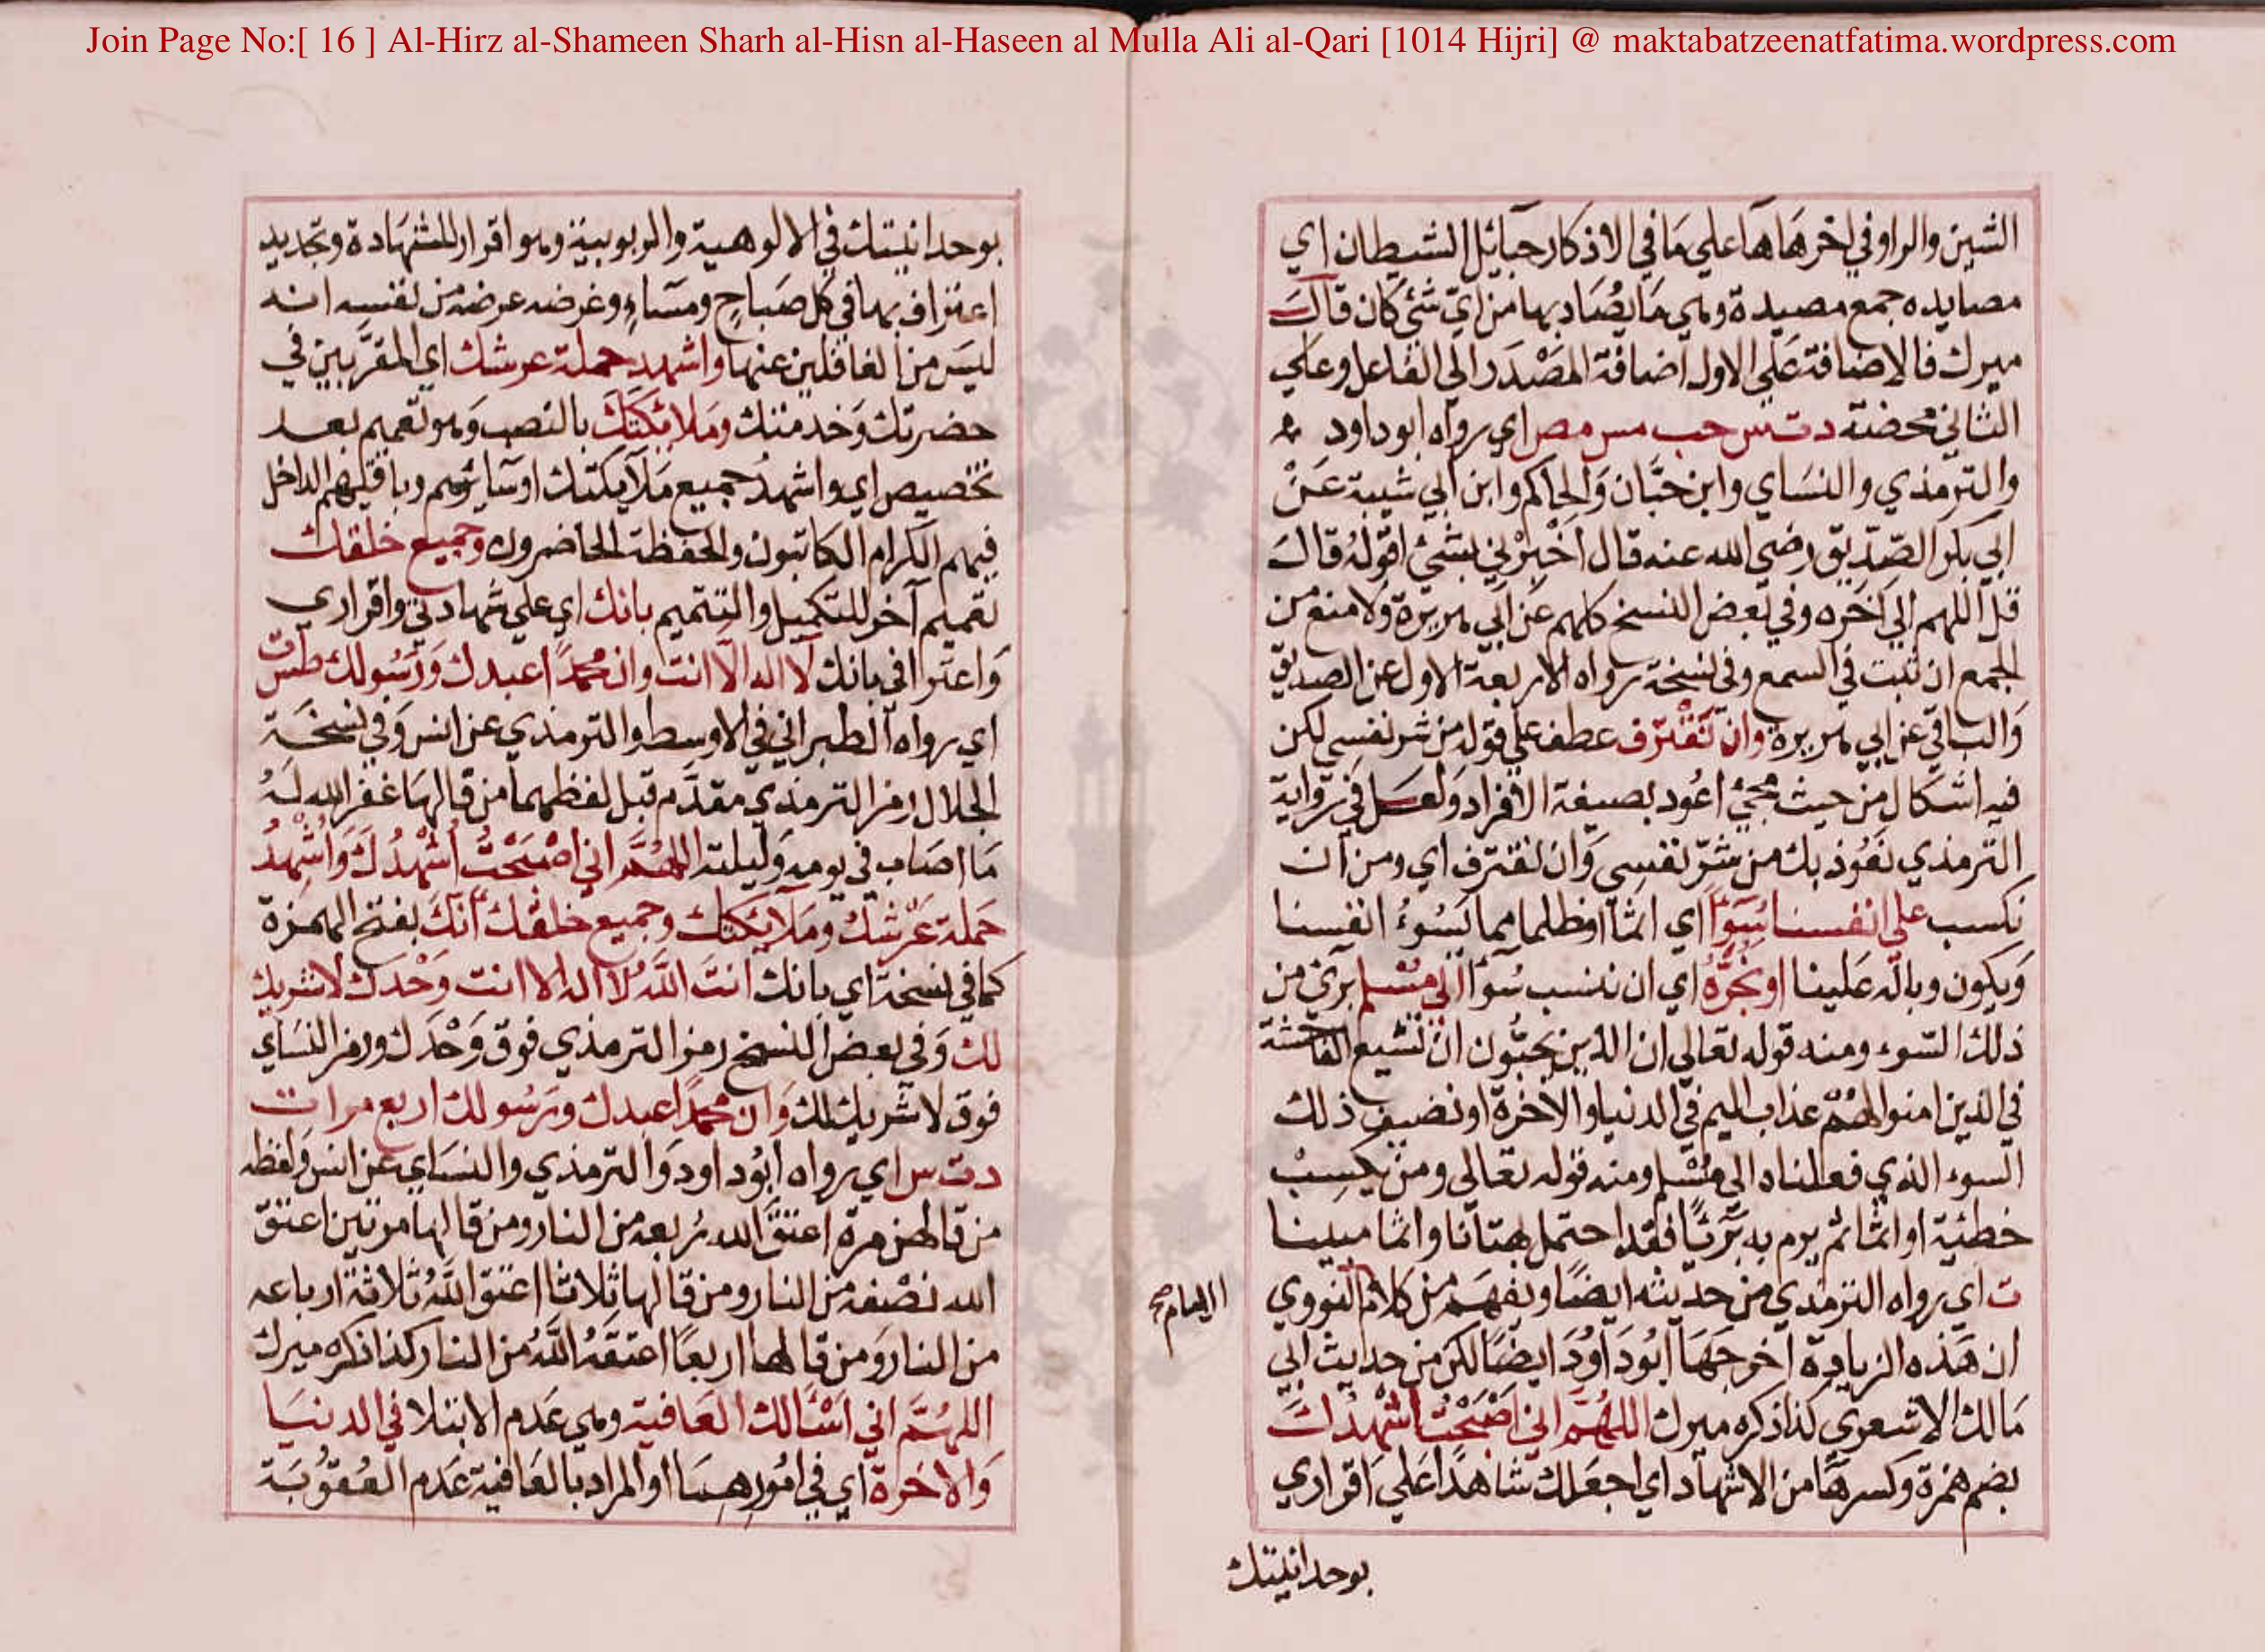 Join Page No:[ 16 ] Al-Hirz al-Shameen Sharh al-Hisn al-Haseen al Mulla Ali al-Qari [1014 Hijri] @ maktabatzeenatfatima.wordpress.com
الشين والراو في اخرها ها على ما في الاذكار حبائل الشيطان اي
مصايده جمع مصيدة وهي مَا يُصَاد بها من ايّ شئ كان قال
ميرك فالاضافة عَلى الاول اضافة المصْدَر الي الفاعل وعلي
الثاني محضة د ت س حب مس مص اي رواه ابو داود
والترمذي والنسَاي وابن حبَّان وَالحاكم وابن ابي شيبة عَنْ
ابي بكر الصّدّيق رضي الله عنه قال اخْبِرْني بشئ اقولهُ قال
قل اللهم الي اخره وفي بعض النسخ كلهم عَن ابي هريرة وَلا منع من
الجمع ان ثبت في السمع وفي نسخة رواه الاربعة الاول عن الصديق
وَالباقي عن ابي هريرة وان نَقْترف عطف على قوله من شر نفسي لكن
فيه اشكال من حيث مجيْ اعُوذ بصيغة الافراد وَلعل في رواية
الترمذي نعُوذ بك من شرّ نفسِي وَان نقترف اي ومن ان
نكسب على انفسنا سُوَأً اي اثما او ظلما مما يَسُوءُ انفسنا
وَيكون وباله عَلينا او نجُرَّهُ اي ان ننسب سُوأ الي مسْلم برئ من
ذلك السّوء ومنه قوله تعالى ان الذين يحبّون ان تشيع الفاحشة
في الذين امنوا لهُمْ عذاب اليم في الدنيا والاخرة او نضيف ذلك
السوء الذي فعلناه الي مسْلم ومنه قوله تعالى ومن يكسِبْ
خطيئة او اثما ثم يرم به برَئًا فقد احتمل بهتانا واثما مبينا
ت اي رواه الترمذي من حديثه ايضًا ويفهَم من كلام النووي
الامام صح
ان هَذه الزيادة اخرجَهَا ابُودَاوُدَ ايضًا لكن من حديث ابي
مَالك الاشعري كذا ذكره ميرك اللهُمَّ اني اصْبَحْتُ اشْهدُكَ
بضم همزة وكسر هَا من الاشهاد اي اجعَلك شاهدًا عَلي اقراري
بوحدانيتك
بوحدانيتك في الالوهية والربوبية وهو اقرار للشهادة وتجديد
اعتراف بها في كل صَباحٍ ومسَاءٍ وغرضه عرضه من نفسه انه
ليسَ من الغافلين عنها واشهد حملة عرشك اي المقرّبين في
حضرتك وَخدمتك وَملائكتَكَ بالنصب وَهو تعميم بعد
تخصيص اي واشهدُ جميع مَلَايكتك او سَائرهم وباقيهم الداخل
فيهم الكرام الكاتبون والحفظة الحاضرون وجميع خلقك
تعميم آخر للتكميل والتتميم بانك اي علي شهادتي واقراري
وَاعترافي بانك لَا اله الّا انت وان محمدًا عبدك وَرَسُولك طس ت
اي رواه الطبراني في الاوسط والترمذي عن انس وَفي نسخَة
الجلال رمز الترمذي مقدَّم قبل لفظهما من قالها غفر الله لَهُ
مَا اصَاب في يومه وَليلته اللهُمَّ اني اصْبَحْتُ اشْهدُكَ وَاُشْهدُ
حَملة عَرْشكَ ومَلَايكتك وجميع خلقك اَنّكَ بفتح الهمزة
كما في نسخة اي بانك انتَ اللهُ لَا اله الا انت وَحْدكَ لَا شريك
لك وَفي بعض النسخ رمز الترمذي فوق وَحْدَك ورمز النسَاي
فوق لا شريك لك وَان محمدًا عبدك ورَسُولك اربع مرات
د ت س اي رواه ابُوداود وَالترمذي والنسَاي عن انس وَلفظه
من قالهن مرة اعتقَ الله رُبعه من النار ومن قالها مرتين اعتق
الله نصْفه من النار ومن قالها ثلاثا اعتق اللهُ ثلاثة ارباعه
من النار وَمن قالها اربعًا اعتقهُ اللهُ من النار كذا ذكره ميرك
اللهُمَّ اني اسْئالك العَافية وهي عَدم الابتلا في الدنيَا
وَالاخرة اي في امُورهِمَا او المراد بالعَافية عَدم العُقوُبَة